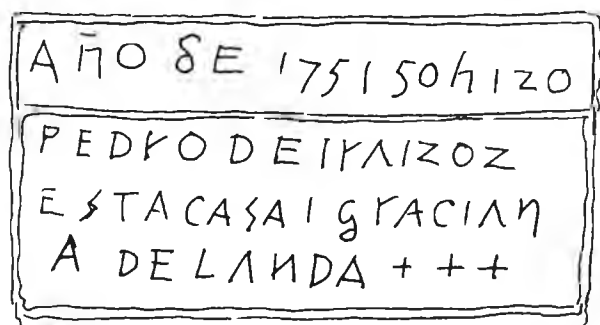 AÑO DE 1751 SO HIZO
PEDRO DE IRAIZOZ
ESTA CASA I GRACIAN
A DE LANDA + + +